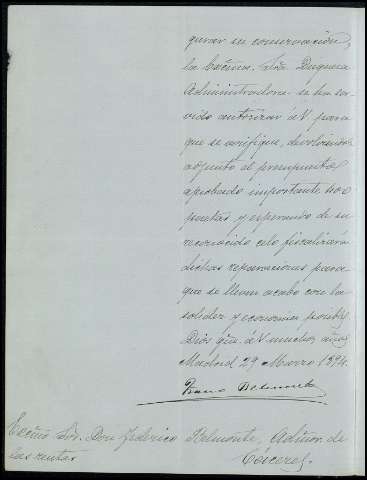 gurar su conservación,
la Excma. Sra. Duquesa
Administradora se ha ser-
vido autorizar á V. para
que se verifique, devolviendo
adjunto el presupuesto
aprobado importante
pesetas y esperando de su
reconocido celo fiscalizará
dichas reparaciones para
que se lleven acabo con la
solidez y economia posible
Dios gũe á V. muchos años
Madrid 29 Marzo 1894.
Belmonte
Sor. Don Federico Belmonte, Admor de
las rentas Cáceres.